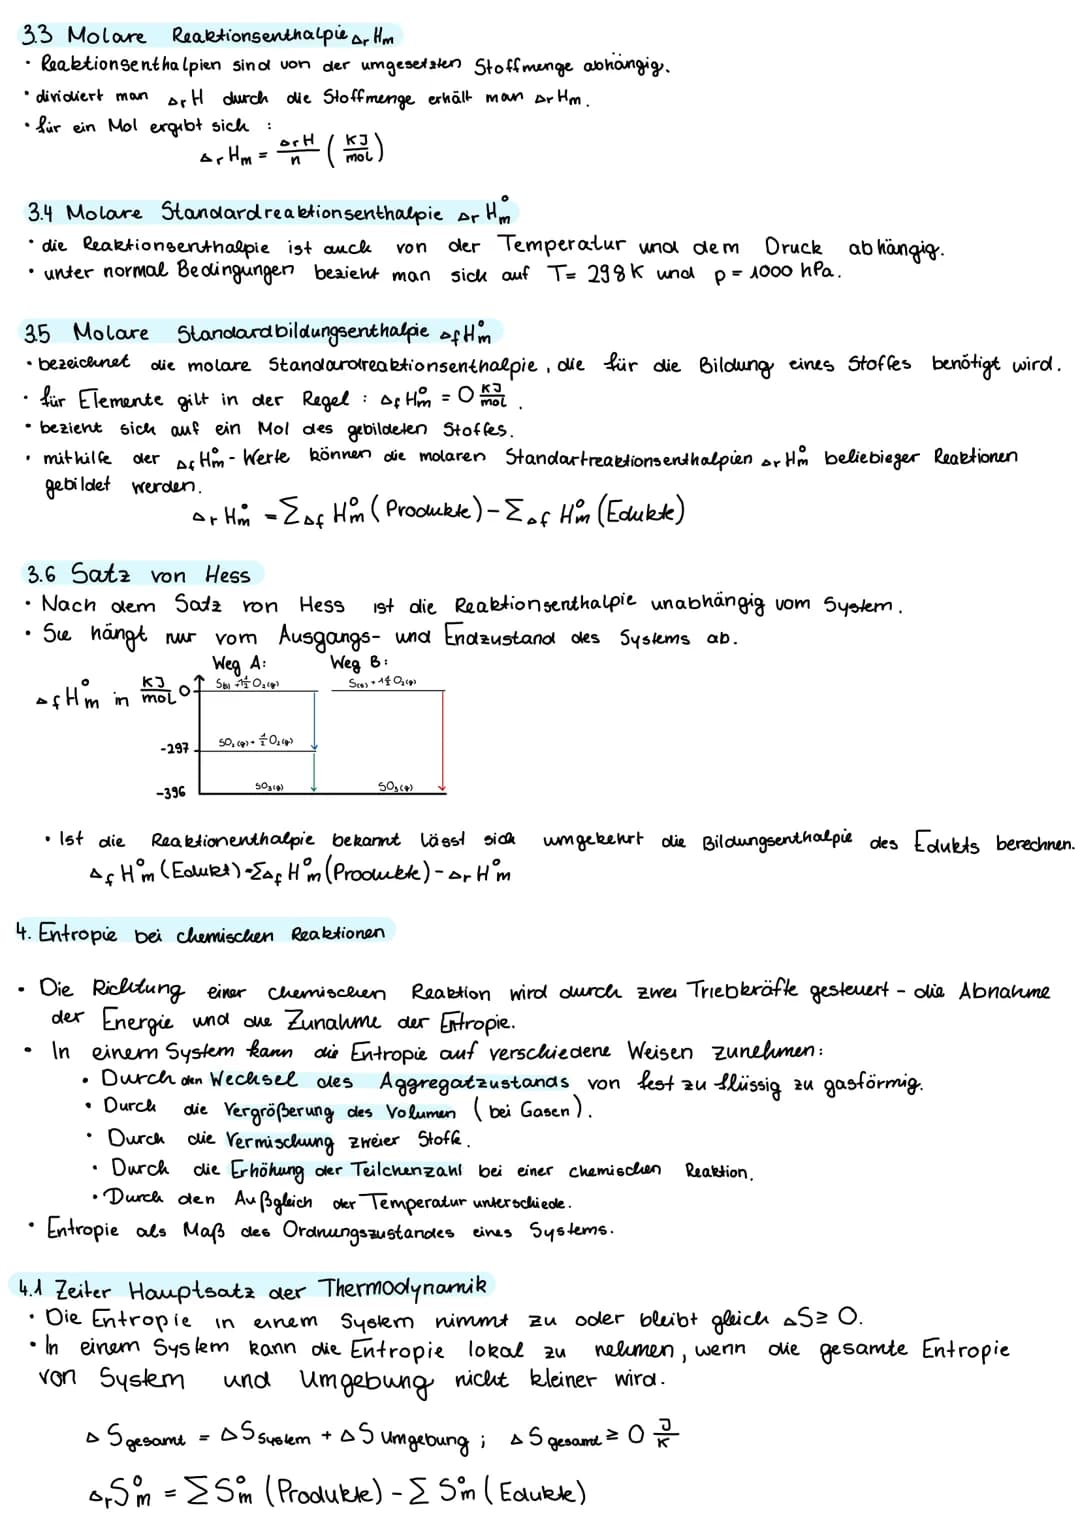 3.3 Molare Reaktionsenthalpie ΔrHm
• Reaktionsenthalpien sind von der umgesetzten Stoffmenge abhängig.
• dividiert man ΔrH durch die Stoffmenge erhält man ΔrHm.
• für ein Mol ergibt sich :
ΔrHm = ΔrH/n (KJ/mol)
3.4 Molare Standardreaktionsenthalpie ΔrH°m
• die Reaktionsenthalpie ist auch von der Temperatur und dem Druck abhängig.
• unter normal Bedingungen bezieht man sich auf T= 298K und p = 1000 hPa.
3.5 Molare Standardbildungsenthalpie ΔfH°m
• bezeichnet die molare Standardreaktionsenthalpie, die für die Bildung eines Stoffes benötigt wird.
• für Elemente gilt in der Regel : ΔfH°m = 0 KJ/mol .
• bezieht sich auf ein Mol des gebildeten Stoffes.
• mithilfe der ΔfH°m - Werte können die molaren Standartreaktionsenthalpien ΔrH°m beliebieger Reaktionen
gebildet werden.
ΔrH°m = ΣΔfH°m (Produkte) - ΣΔfH°m (Edukte)
3.6 Satz von Hess
• Nach dem Satz von Hess ist die Reaktionsenthalpie unabhängig vom System.
• Sie hängt nur vom Ausgangs- und Endzustand des Systems ab.
Weg A: Weg B:
ΔfH°m in KJ/mol 0 S(s) + 1½ O₂(g) S(s) + 1½ O₂(g)
-297 SO₂(g) + ½ O₂(g)
-396 SO₃(g) SO₃(g)
• Ist die Reaktionenthalpie bekannt lässt sich umgekehrt die Bildungsenthalpie des Edukts berechnen.
ΔfH°m (Edukt) = ΣΔfH°m (Produkte) - ΔrH°m
4. Entropie bei chemischen Reaktionen
• Die Richtung einer chemischen Reaktion wird durch zwei Triebkräfte gesteuert - die Abnahme
der Energie und die Zunahme der Entropie.
• In einem System kann die Entropie auf verschiedene Weisen zunehmen:
• Durch den Wechsel des Aggregatzustands von fest zu flüssig zu gasförmig.
• Durch die Vergrößerung des Volumen ( bei Gasen ).
• Durch die Vermischung zweier Stoffe.
• Durch die Erhöhung der Teilchenzahl bei einer chemischen Reaktion.
• Durch den Außgleich der Temperatur unterschiede.
• Entropie als Maß des Ordnungszustandes eines Systems.
4.1 Zeiter Hauptsatz der Thermodynamik
• Die Entropie in einem System nimmt zu oder bleibt gleich ΔS≥ 0.
• In einem System kann die Entropie lokal zu nehmen, wenn die gesamte Entropie
von System und Umgebung nicht kleiner wird.
ΔS gesamt = ΔS System + ΔS Umgebung ; ΔS gesamt ≥ 0 J/K
ΔrS°m = ΣS°m (Produkte) - Σ S°m (Edukte)